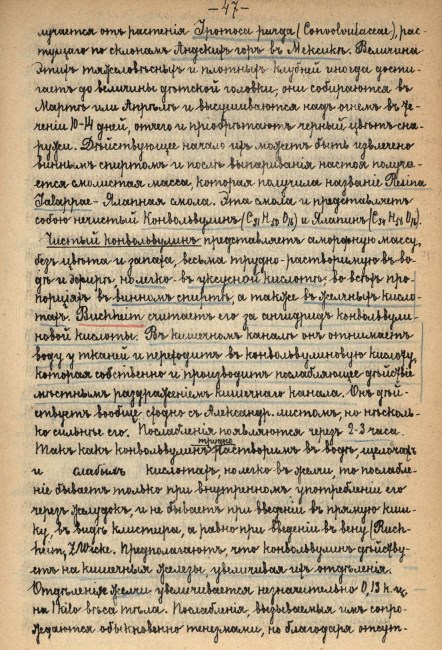 —47—
лучается отъ растенія Ipomoea purga (Convolvulaceae), рас-
тущаго по склонамъ Андскихъ горъ въ Мексикѣ. Величина
этихъ тяжеловѣсныхъ и плотныхъ клубней иногда дости-
гаетъ до величины дѣтской головки; они собираются въ
Мартѣ или Апрѣлѣ и высушиваются надъ огнемъ въ те-
ченіи 10-14 дней, отчего и пріобрѣтаютъ черный цвѣтъ сна-
ружи. Дѣйствующее начало ихъ можетъ быть извлечено
виннымъ спиртомъ и послѣ выпариванія настоя получа-
ется смолистая масса, которая получила названіе Resina
Jalappae - Ялапная смола. Эта смола и представляетъ
собою нечистый Конвольвулинъ (C31 H50 O16) и Ялапинъ (C34 H56 O16).
Чистый конвольвулинъ представляетъ аморфную массу,
безъ цвѣта и запаха, весьма трудно-растворимую въ во-
дѣ и эфирѣ, но легко - въ уксусной кислотѣ; во всѣхъ про-
порціяхъ въ винномъ спиртѣ, а также въ желчныхъ кисло-
тахъ. Buchheim считаетъ его за ангидридъ конвольвули-
новой кислоты. Въ кишечномъ каналѣ онъ отнимаетъ
воду у тканей и переходитъ въ конвольвулиновую кислоту,
которая собственно и производитъ послабляющее дѣйствіе
мѣстнымъ раздраженіемъ кишечнаго канала. Онъ дѣй-
ствуетъ вообще сходно съ Александр. листомъ, но нѣсколь-
ко сильнѣе его. Послабленія появляются черезъ 2-3 часа.
Такъ какъ конвольвулинъ трудно растворимъ въ водѣ, щелочахъ
и слабыхъ кислотахъ, но легко въ желчи, то послабле-
ніе бываетъ только при внутреннемъ употребленіи его
черезъ желудокъ, и не бываетъ при введеніи въ прямую киш-
ку, въ видѣ клистира, а равно при введеніи въ вену (Buch-
heim,
Предполагаютъ, что конвольвулинъ дѣйству-
етъ на кишечныя железы, увеличивая ихъ отдѣленія.
Отдѣленіе желчи увеличивается незначительно 0,13 к. ц.
на 1 kilo вѣса тѣла. Послабленія, вызываемыя имъ сопро-
вождаются обыкновенно тенезмами, но благодаря отсут-